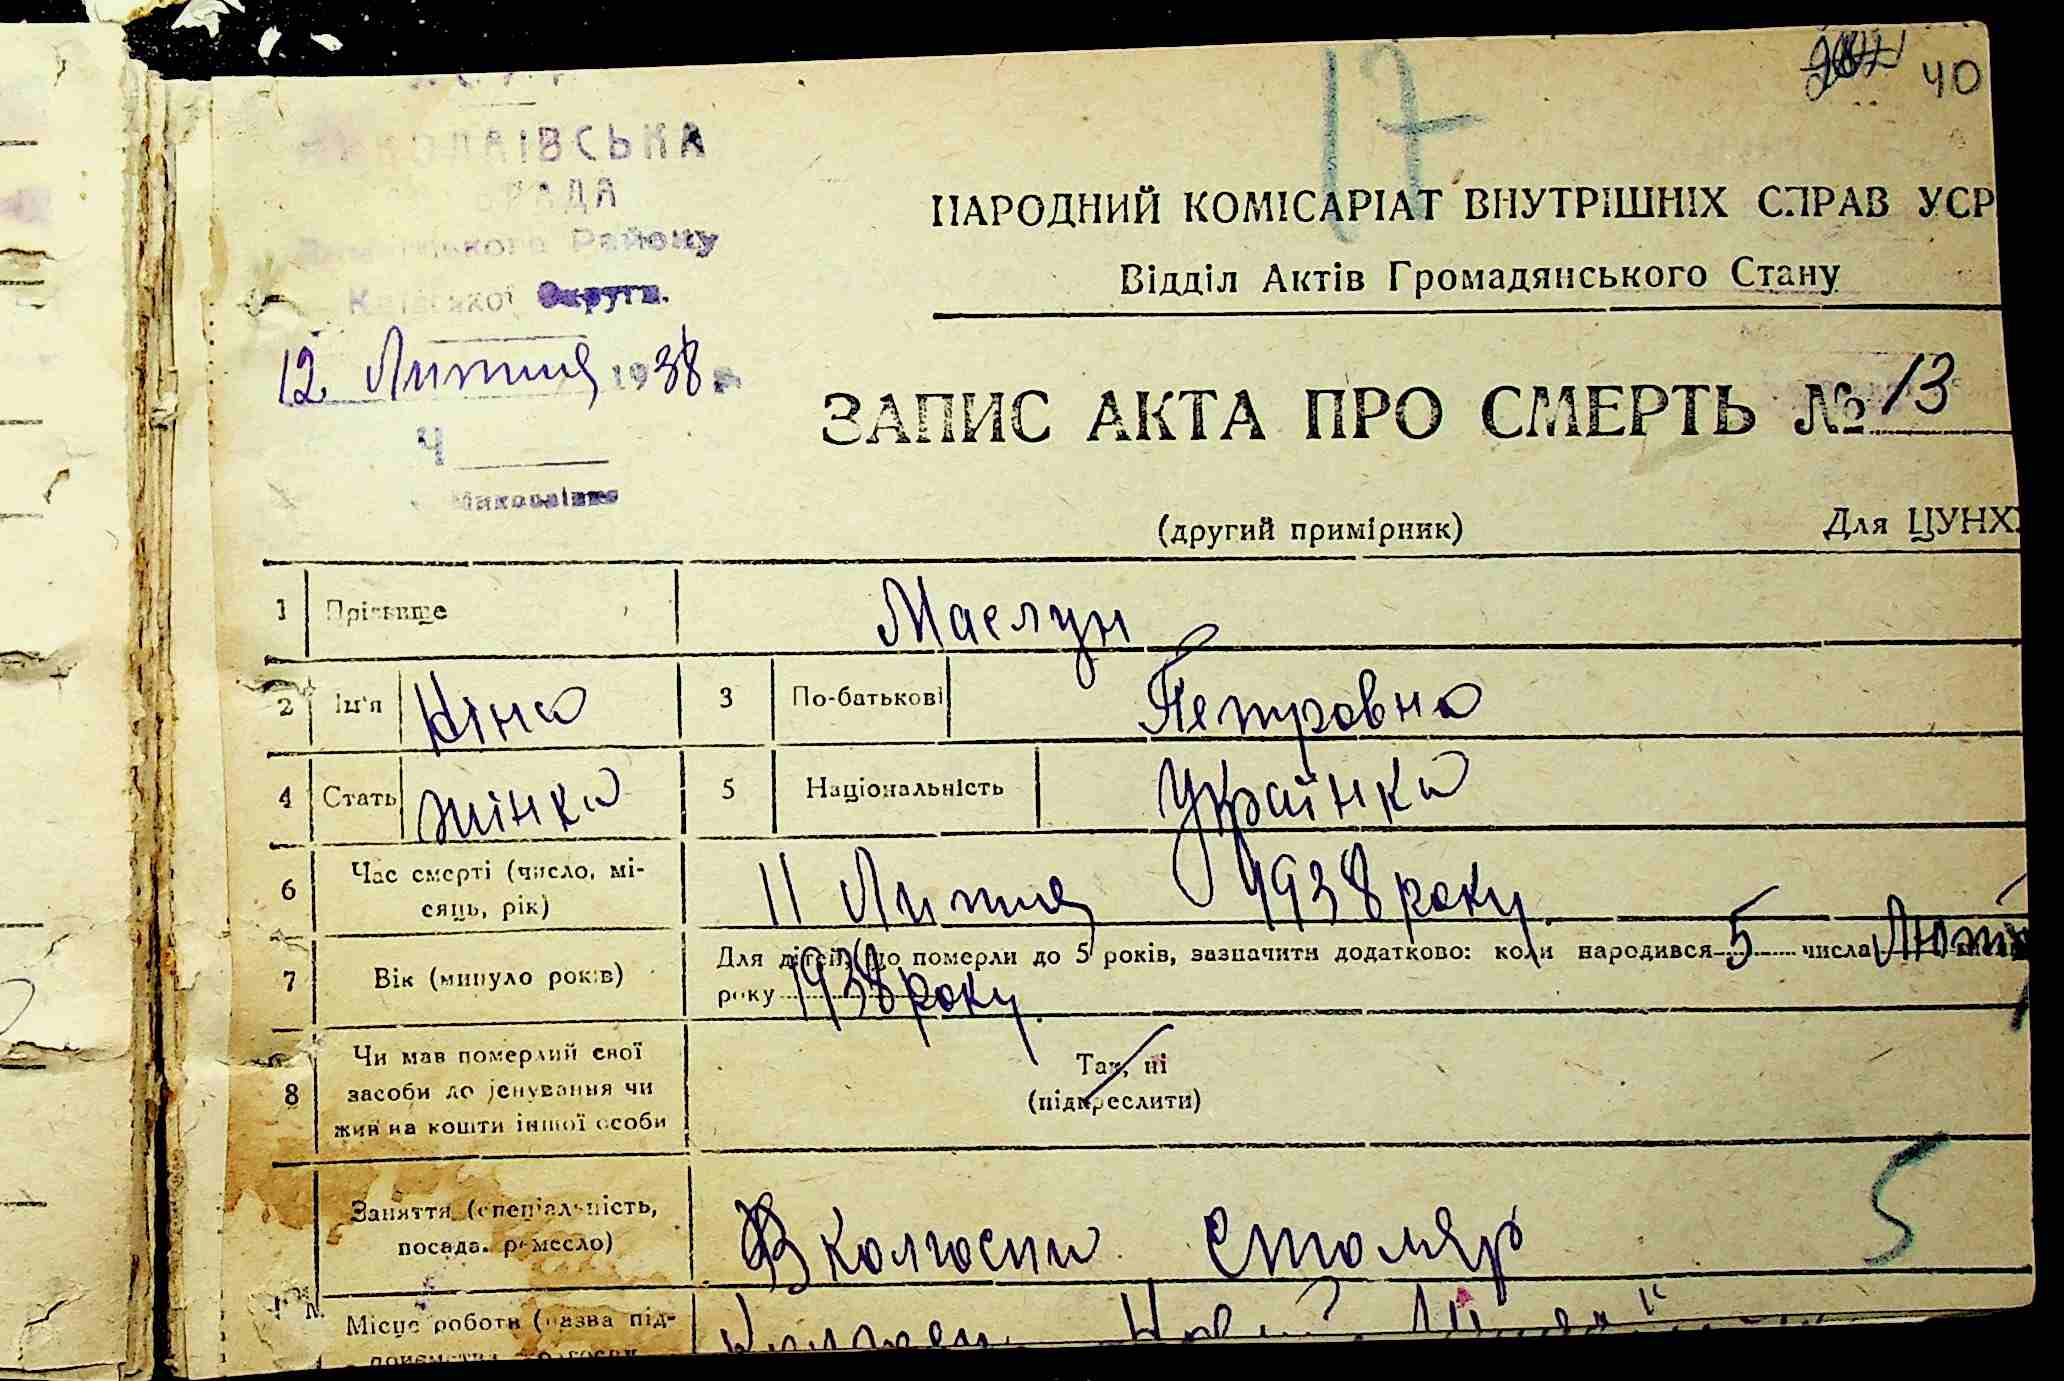 40
17
КОЛАІВСЬКА
РАДА
Району
Округи.
12 Липня 1938 р.
Ч
Миколаївка
НАРОДНИЙ КОМІСАРІАТ ВНУТРІШНІХ СПРАВ УСР
Відділ Актів Громадянського Стану
ЗАПИС АКТА ПРО СМЕРТЬ № 13
(другий примірник)
Для ЦУНХ
1 Прізвище Маслун
2 Ім'я Ніна 3 По-батькові Петровна
4 Стать жінка 5 Національність Українка
6 Час смерті (число, мі-
сяць, рік) 11 Липня 1938 року
7 Вік (минуло років) Для дітей, що померли до 5 років, зазначити додатково: коли народився 5 числа
року 1938 року
8 Чи мав померлий свої
засоби до існування чи
жив на кошти іншої особи
Так, ні
(підкреслити)
Заняття (спеціальність,
посада, ремесло) В колгоспи столяр
5
Місце роботи (назва під-